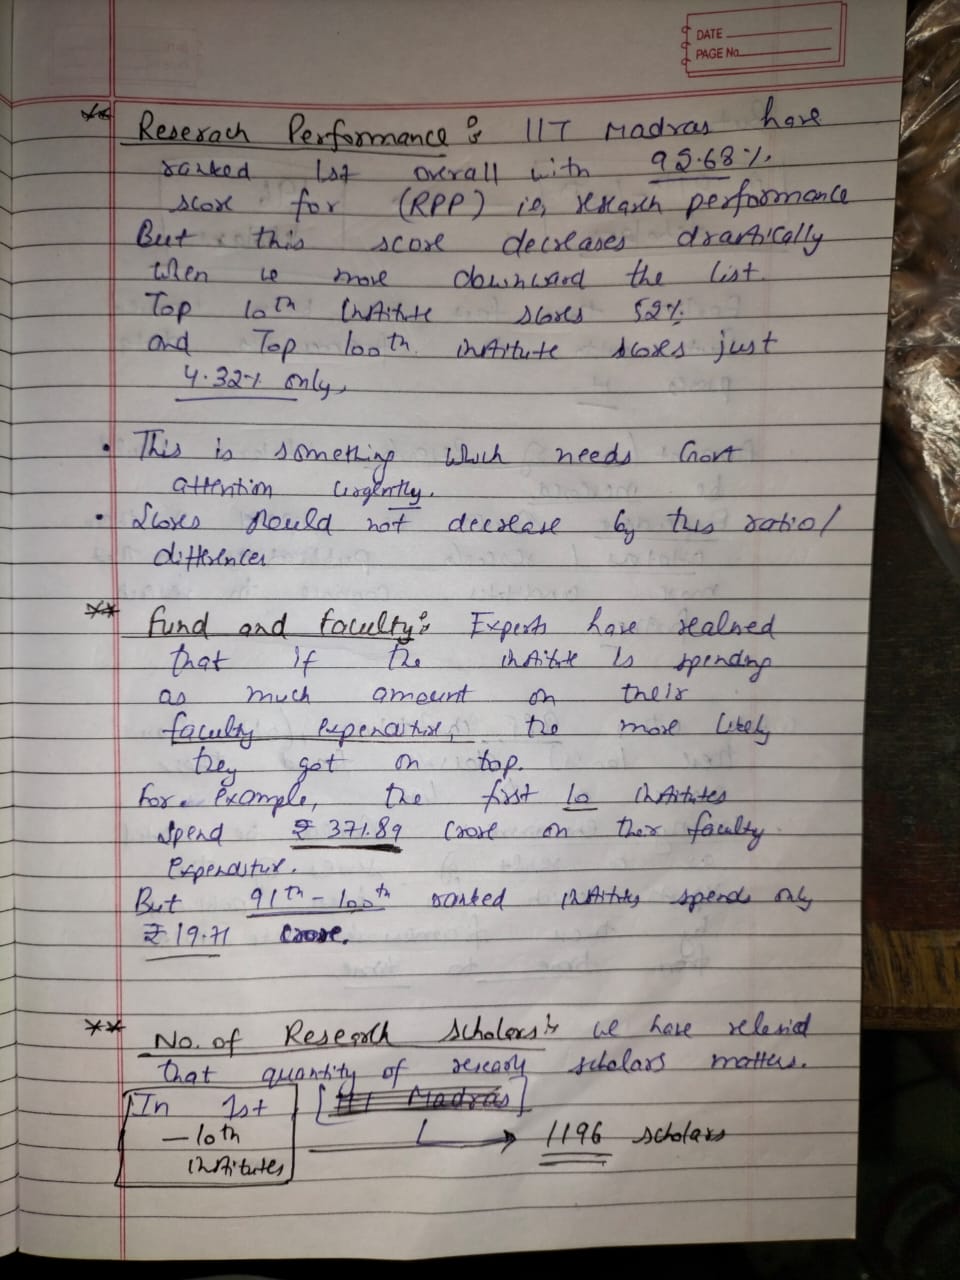 DATE
PAGE No.
** Reserach Performance : IIT Madras have
ranked 1st overall with 95.68%
score for (RPP) ie, research performance
But this score decreases drastically
when we move downward the list.
Top 10th institute scores 52%
and Top 100th institute scores just
4.32% only,
• This is something which needs Govt
attention urgently.
• Scores should not decrease by this ratio/
differences
** Fund and faculty : Experts have realised
that if the institute is spending
as much amount on their
faculty expenditure, the more likely
they got on top.
For. Example, the first 10 institutes
spend ₹ 371.89 Crore on their faculty
Expenditure.
But 91th - 100th ranked institutes spends only
₹ 19.71 Crore.
** No. of Research Scholars : we have
that quantity of research scholars matters.
In 1st [IIT Madras]
– 10th → 1196 scholars
institutes